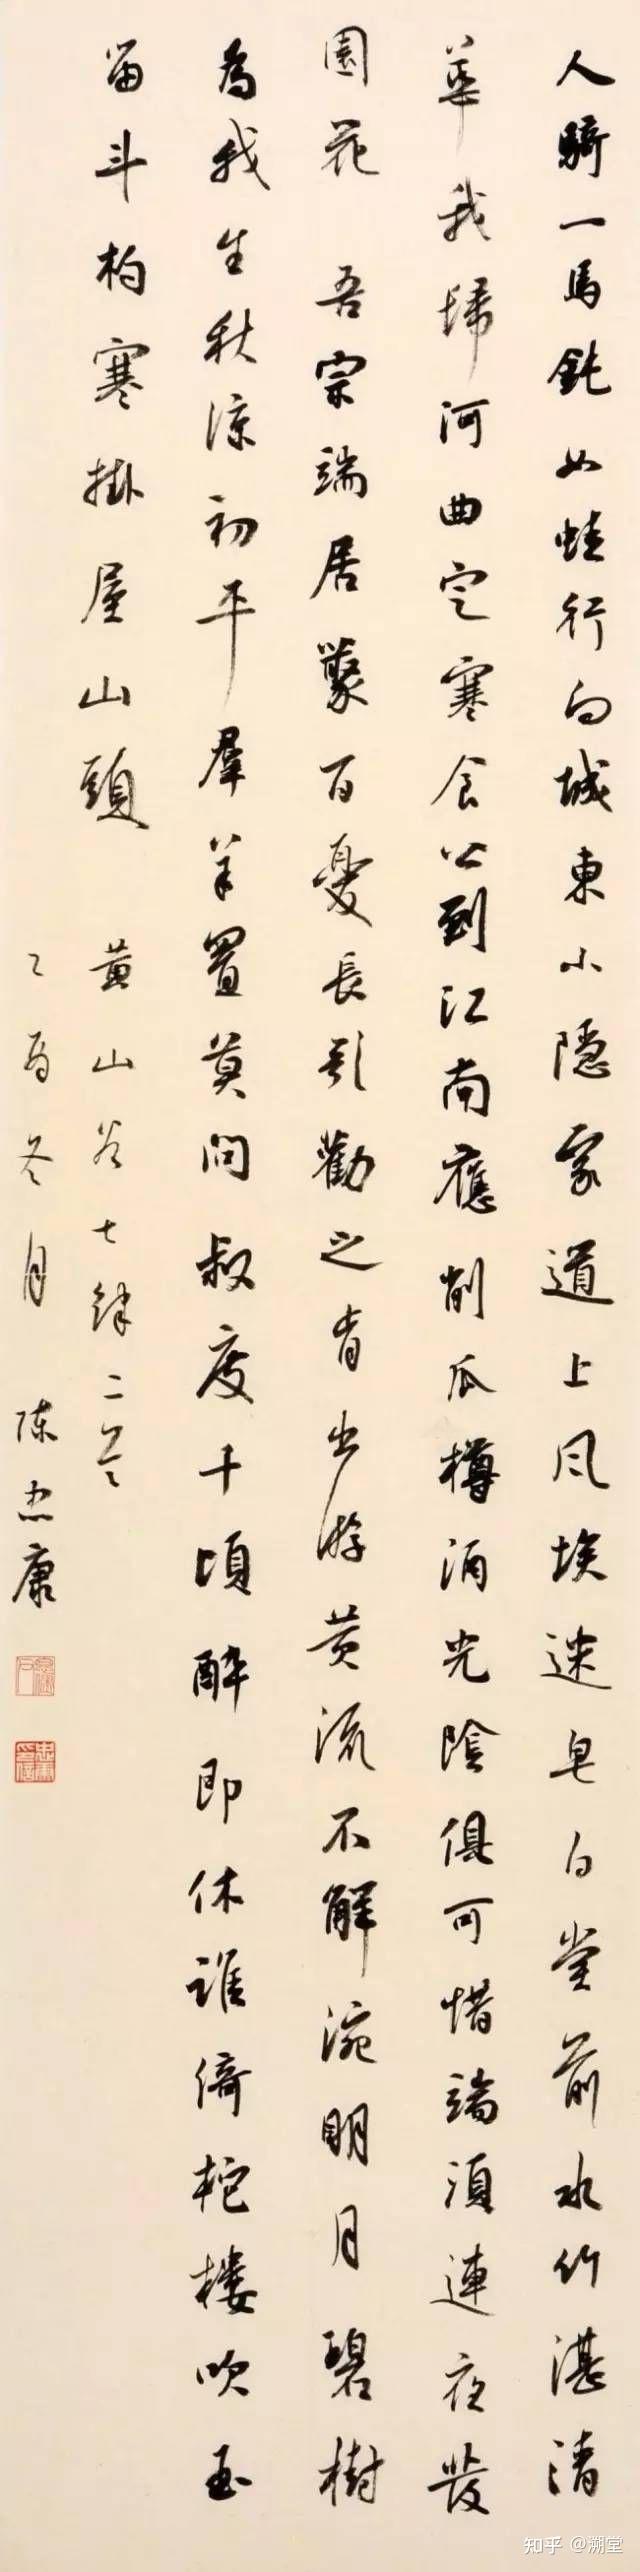 人騎一馬鈍如蛙行向城東小隱家道上風埃迷皂白堂前水竹湛清
華我歸河曲定寒食公到江南應削瓜樽酒光陰俱可惜端須連夜發
園花 吾宗端居藂百憂長歌勸之肯出游黄流不解涴明月碧樹
為我生秋涼初平羣羊置莫問叔度千頃醉即休誰倚柁樓吹玉
笛斗杓寒掛屋山頭 黄山谷七律二首
乙酉冬月 陈忠康
知乎 @溯堂